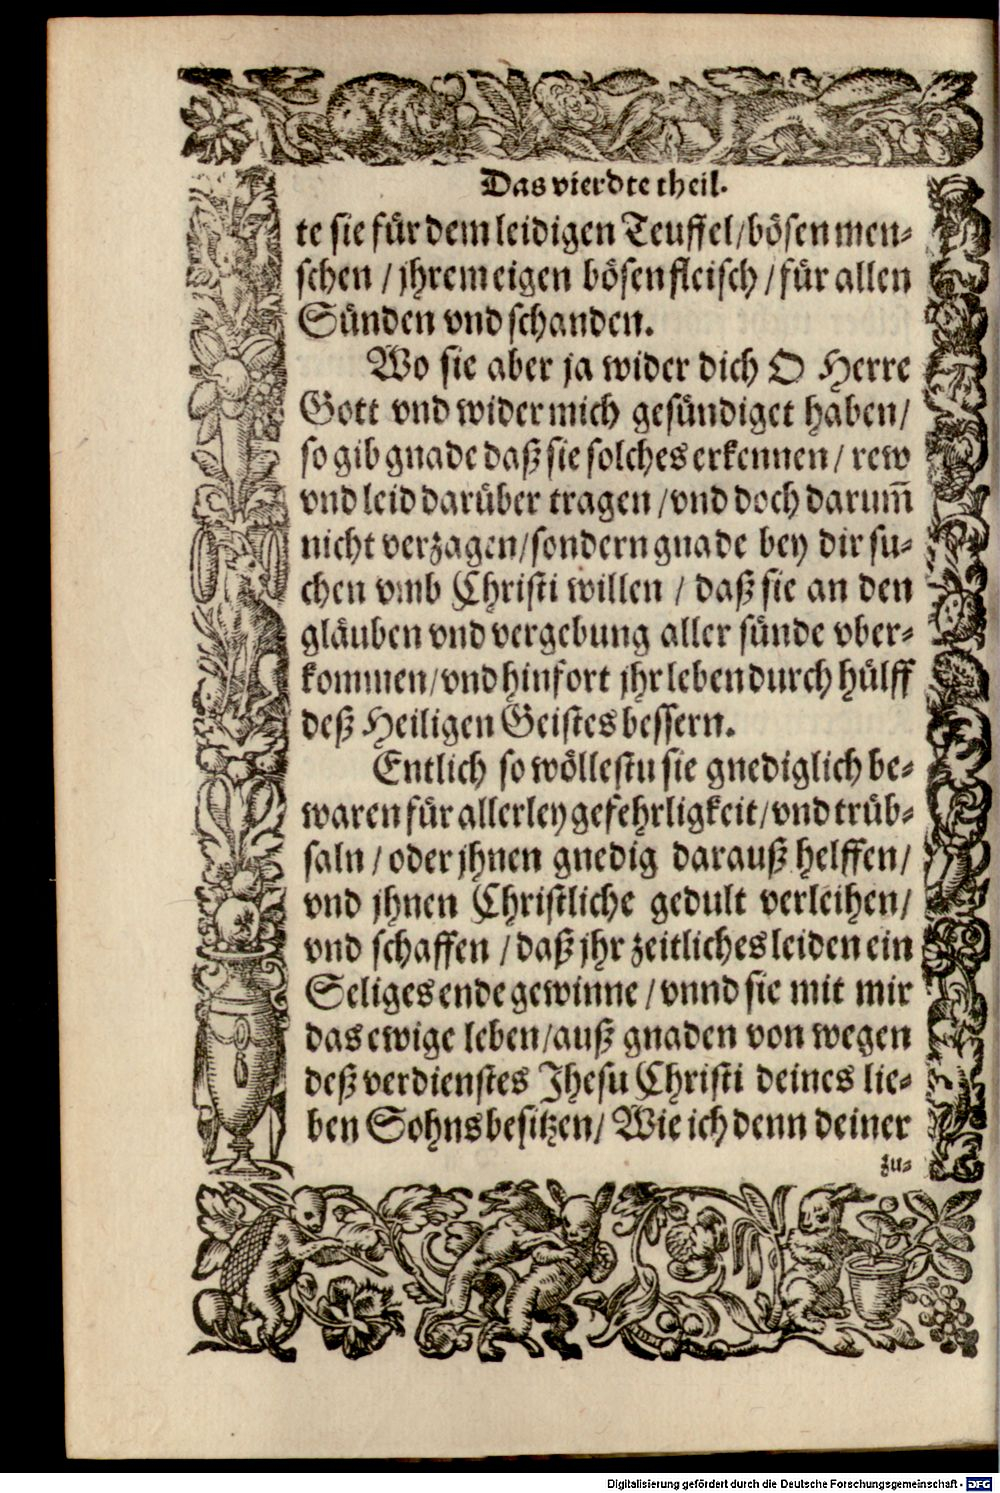 Das vierdte theil.
te sie für dem leidigen Teuffel/bösen men-
schen / jhrem eigen bösen fleisch / für allen
Sünden vnd schanden.
Wo sie aber ja wider dich O Herre
Gott vnd wider mich gesündiget haben/
so gib gnade daß sie solches erkennen / rew
vnd leid darüber tragen / vnd doch darum̃
nicht verzagen/sondern gnade bey dir su-
chen vmb Christi willen / daß sie an den
gläuben vnd vergebung aller sünde vber-
kommen/vnd hinfort jhr leben durch hülff
deß Heiligen Geistes bessern.
Entlich so wöllestu sie gnediglich be-
waren für allerley gefehrligkeit/vnd trüb-
saln / oder jhnen gnedig darauß helffen/
vnd jhnen Christliche gedult verleihen/
vnd schaffen / daß jhr zeitliches leiden ein
Seliges ende gewinne / vnnd sie mit mir
das ewige leben/auß gnaden von wegen
deß verdienstes Jhesu Christi deines lie-
ben Sohns besitzen/ Wie ich denn deiner
zu-
Digitalisierung gefördert durch die Deutsche Forschungsgemeinschaft - DFG